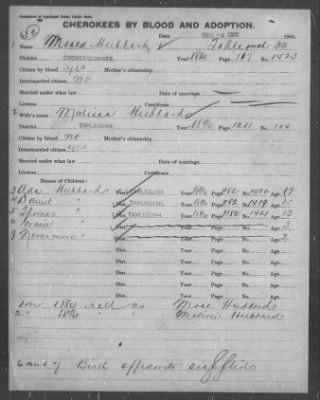 CHEROKEES BY BLOOD AND ADOPTION.
Date DEC -4 1900 1900.
1 Name Mose Hubbard Tahlequah
District COOWEESCOOWEE Year 1880 Page 107 No. 1423
Citizen by blood yes Mother's citizenship.
Intermarried citizen no
Married under what law Date of marriage
License Certificate
2 Wife's name Malissa Hubbard
District TAHLEQUAH. Year 1896 Page 1261 No. 104
Citizen by blood no Mother's citizenship.
Intermarried citizen yes
Married under what law Date of marriage
License Certificate
Names of Children:
3 Ada Hubbard Dist. TAHLEQUAH. Year 1896 Page No. 1480 Age 17
4 Daniel " Dist. TAHLEQUAH. Year 1896 Page No. 1479 Age 15
5 Thomas " Dist. TAHLEQUAH. Year 1896 Page 1182 No. 1481 Age 13
6 " Dist. Year Page No. Age 3
7 Nevermore " Dist. Year Page No. Age 2
Dist. Year Page No. Age
Dist. Year Page No. Age
Dist. Year Page No. Age
Dist. Year Page No. Age
1 on 1880 roll as Mose Hubbird
2 " 1896 " " Malissie Hubbard
of Birth affidavits supplied